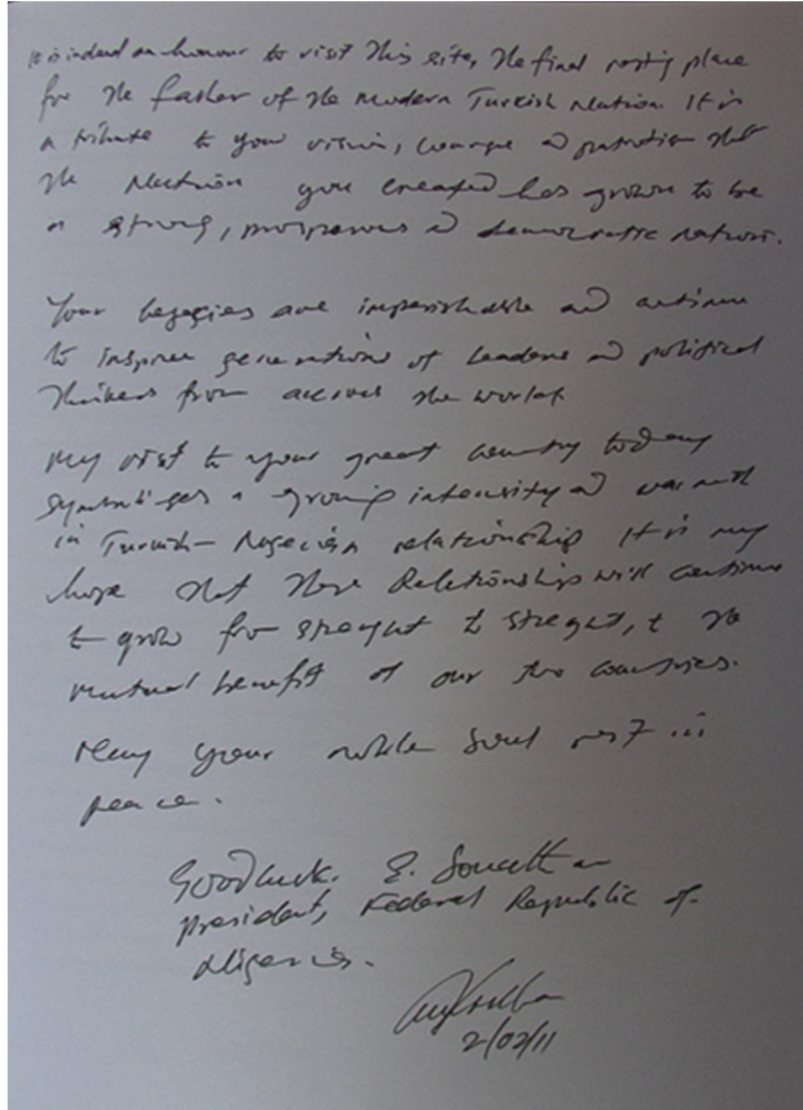 It is indeed an honour to visit this site, the final resting place
for the father of the modern Turkish Nation. It is
a tribute to your vision, courage and patriotism that
the Nation you created has grown to be
a strong, prosperous and democratic nation.
Your legacies are imperishable and continue
to inspire generations of leaders and political
thinkers from across the world.
My visit to your great country today
symbolizes a growing intensity and warmth
in Turkish-Nigerian relationship It is my
hope that these Relationships will continue
to grow from strenght to strenght, to the
mutual benefit of our two countries.
May your noble soul rest in
peace.
Goodluck. E. Jonathan
President, Federal Republic of
Nigeria.
2/02/11